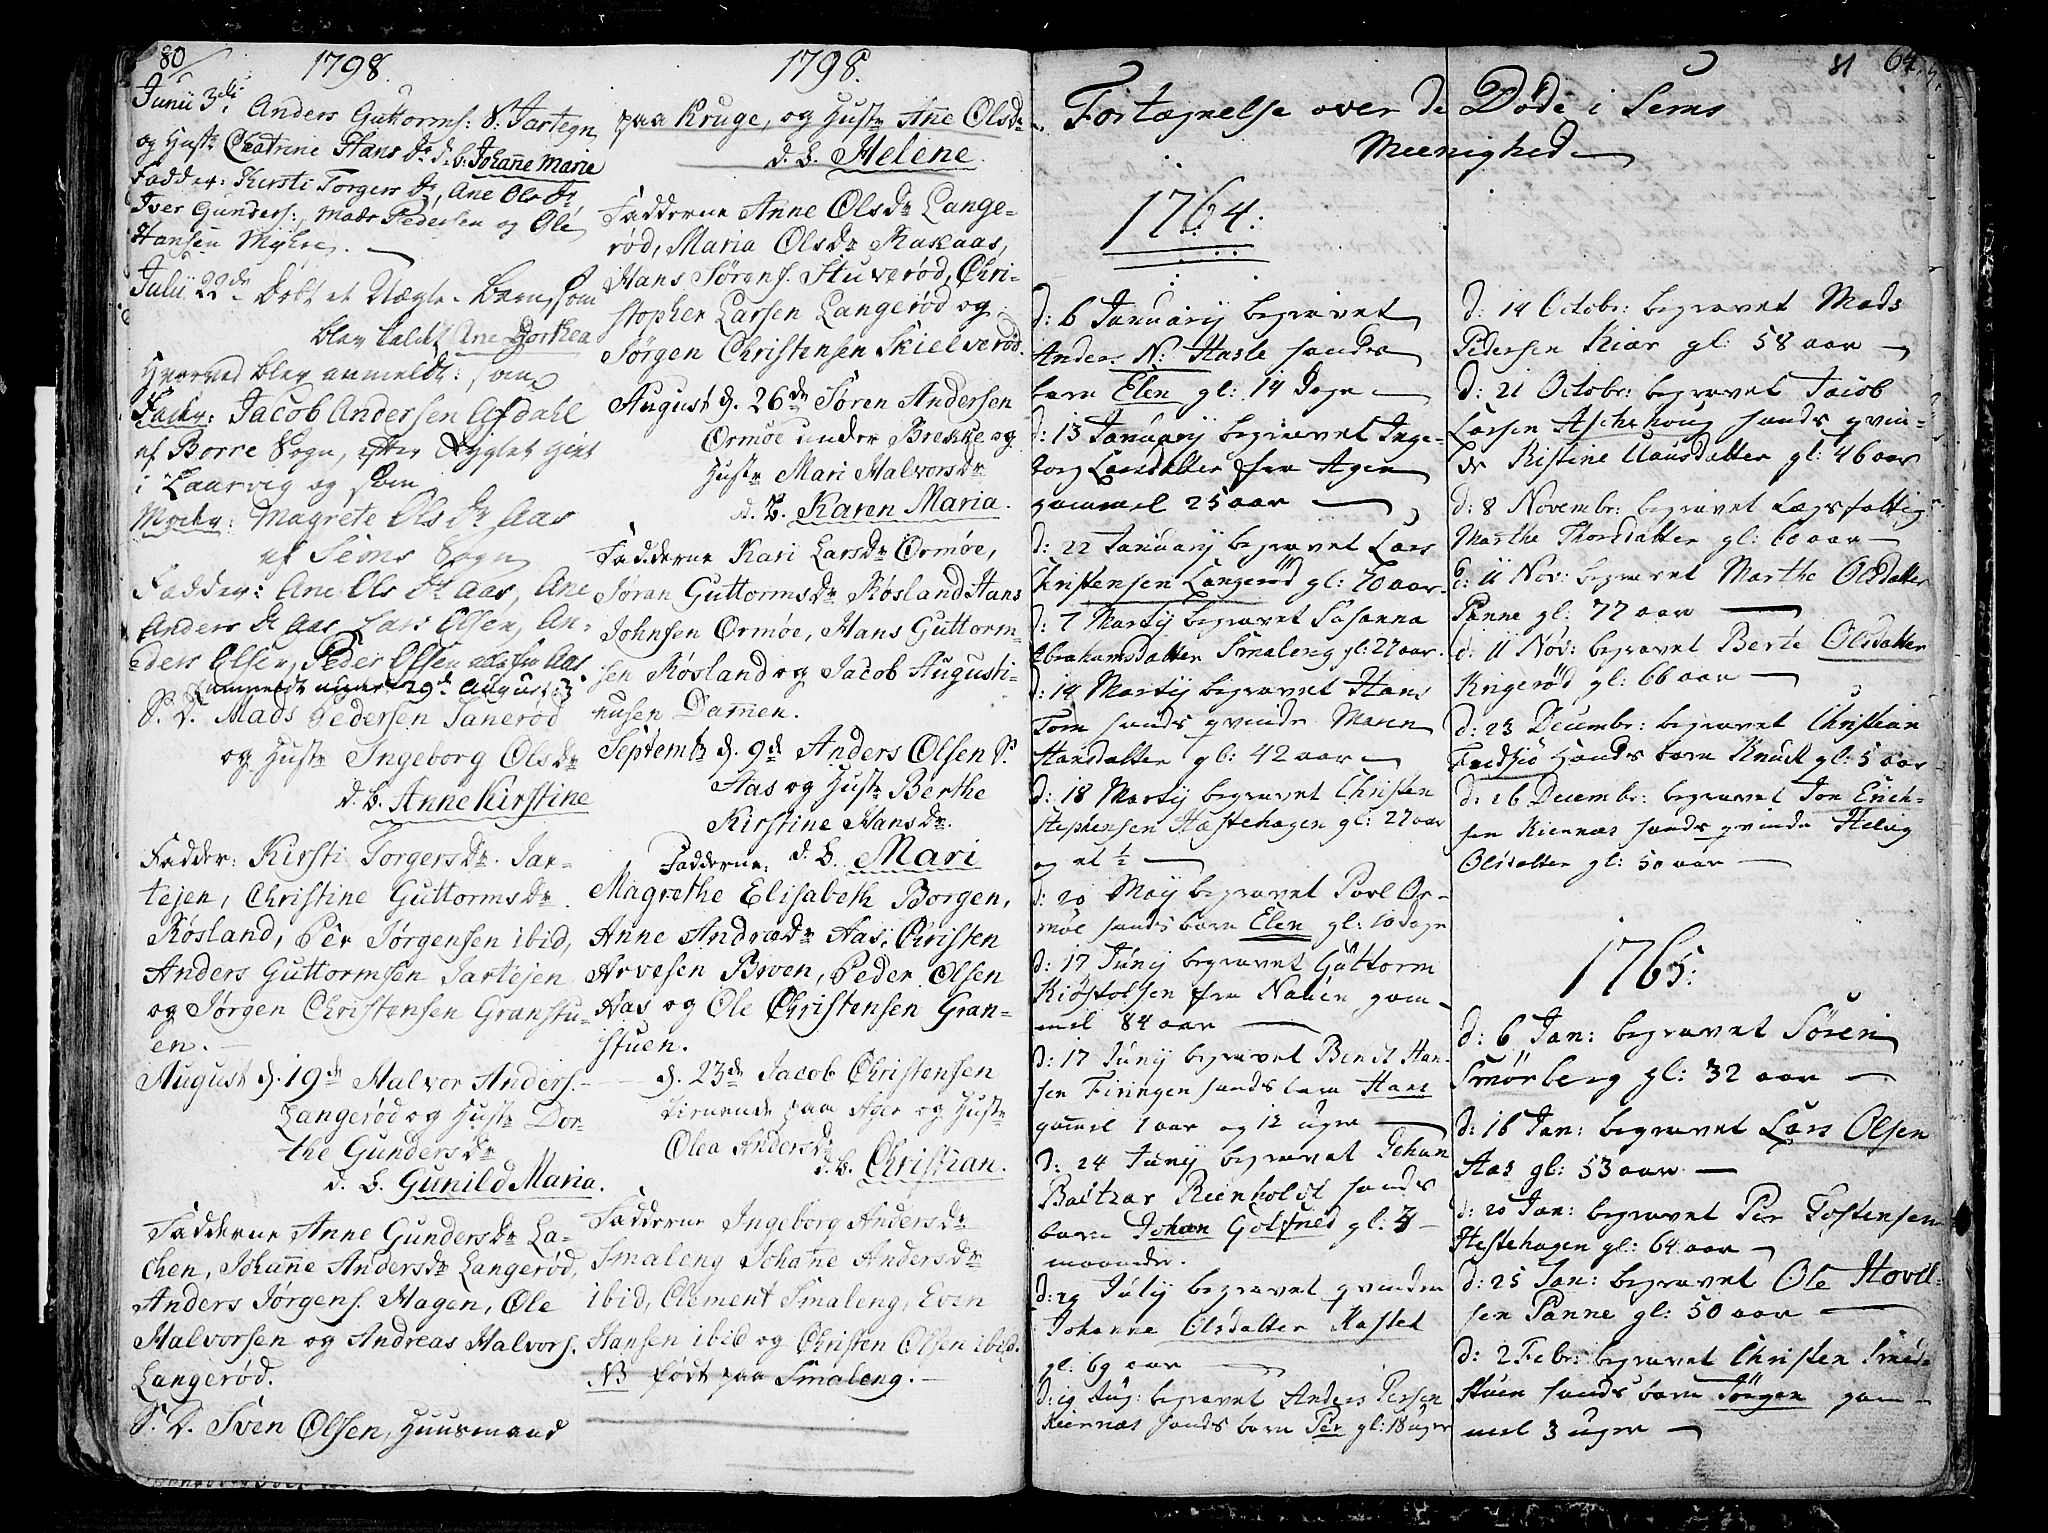 80
1798.
Junii 3di Anders Guttorms: S: Jartegn,
og Hustr Chatrine Hans Dr d. b. Johanne Marie
Fadder: Kirsti Torgers Dr, Ane Ols Dr,
Iver Gunders:, Mads Pedersen og Ole
Hansen Myhre.
Julii 22de Døbt et Uægte Barn, som
blev kaldt Ane Dorthea
Hvorved blev anmeldt: som
Fader: Jacob Andersen Afdahl
af Borre Sogn, efter Rygtet giet
i Laurvig og som
Moder: Magrete Ols Dr Aas
af Sems Sogn
Fadder: Ane Ols Dr Aas, Ane
Anders Dr Aas, Lars Olsen, An-
ders Olsen, Peder Olsen alle fra Aas
S. D. Mads Pedersen Janerød
og Hustr Ingeborg Olsdr
d. b. Anne Kirstine
Fadder: Kirsti Torgersdr. Jar-
tejen, Christine Guttormsdr
Røsland, Per Jørgensen ibid,
Anders Guttormsen Jartejen
og Jørgen Christensen Granstu-
en.
August d. 19de Halvor Anders.
Langerød og Hustr Dor-
the Gundersdr
d. b. Gunild Maria.
Fadderne Anne Gundersdr La-
chen, Johanne Andersdr Langerød,
Anders Jørgens. Hagen, Ole
Halvorsen og Andreas Halvors.
Langerød.
S. D. Sven Olsen, Huusmand
1798.
paa Kruge, og Hustr Anne Olsdr
d. b. Helene.
Fadderne Anne Olsdr Lange-
rød, Maria Olsdr Rakaas,
Hans Sørens. Stuverød, Chri-
stopher Larsen Langerød og
Jørgen Christensen Skielverød.
August d. 26de Søren Andersen
Ormøe under Brekke og
Hustr Mari Halvorsdr
d. b. Karen Maria.
Fadderne Kari Larsdr Ormøe,
Søran Guttormsdr Røsland Hans
Johnsen Ormøe, Hans Guttorm-
sen Røsland og Jacob Augusti-
nusen Dammen.
Septembr d. 9de Anders Olsen S.
Aas og Hustr Berthe
Kirstine Hansdr.
d. b. Mari
Fadderne:
Magrethe Elisabeth Borgen,
Anne Andrædr Aas, Christen
Arvesen Broen, Peder Olsen
Aas og Ole Christensen Gran-
stuen.
d. 23de Jacob Christensen
tienende paa Ager og Hustr
Olea Andersdr
d. b. Christian.
Fadderne Ingeborg Andersdr
Smaleng Johanne Andersdr
ibid, Clement Smaleng, Even
Hansen ibid og Christen Olsen ibid.
NB født paa Smaleng.
81 64.
Fortægnelse over de Døde i Sems
Meenighed
1764:
d: 6 Januarij begravet
Anders N: Hasle hands
barn Elen gl: 14 Dage
d: 13 Januarij begravet Inge-
borg Larsdatter fra Agen
gammel 25 aar
d: 22 Januarij begravet Lars
Christensen Langerød gl: 70 aar.
d: 7 Martij begravet Susanna
Abrahamsdatter Smaleng gl: 27 aar.
d: 14 Martij begravet Hans
Tom hands qvinde Maren
Hansdatter gl: 42 aar
d: 18 Martij begravet Christen
Stephensen Hæstehagen gl: 27 aar
og et ½
d: 20 Maij begravet Povl Or-
møe hands barn Elen gl: 10 dage
d: 17 Junij begravet Guttorm
Kiøstolsen fra Nauen gam-
mel 84 aar
d: 17 Junij begravet Bendt Han-
sen Firingen hands barn Hans
gammel 1 aar og 12 uger
d: 24 Junij begravet Johan
Baltzar Rienholdt hands
barn Johan Gotfried gl: 3
maaneder.
d: 29 Julij begravet qvinden
Johanne Olsdatter Hastet
gl: 69 aar
d: 19 Aug: begravet Anders Persen
Kiernæs hands barn Per gl: 18 uger
d: 14 Octobr: begravet Mads
Pedersen Kiær gl: 58 aar
d: 21 Octobr: begravet Jacob
Larsen Aschehoug hands qvin-
de Kistine Clausdatter gl: 46 aar
d: 8 Novembr: begravet Lægsfattig
Marthe Thorsdatter gl: 60 aar
d: 11 Nov: begravet Marthe Olsdatter
Panne gl: 77 aar
d: 11 Nov: begravet Berte Olsdatter
Ringerød gl: 66 aar
d: 23 Decembr: begravet Christian
Fredsiø Hands barn Knuck gl: 5 aar
d: 26 Decembr: begravet Jon Erich-
sen Kiernæs hands qvinde Helvig
Olsdatter gl: 50 aar
1765:
d: 6 Jan: begravet Søren
Smørberg gl: 32 aar
d: 16 Jan: begravet Lars Olsen
Aas gl: 53 aar
d: 20 Jan: begravet Per Tostensen
Hestehagen gl: 64 aar
d: 25 Jan: begravet Ole Hovel-
sen Panne gl: 50 aar
d: 2 Febr: begravet Christen Smed-
stuen hands barn Jørgen gam-
mel 3 uger